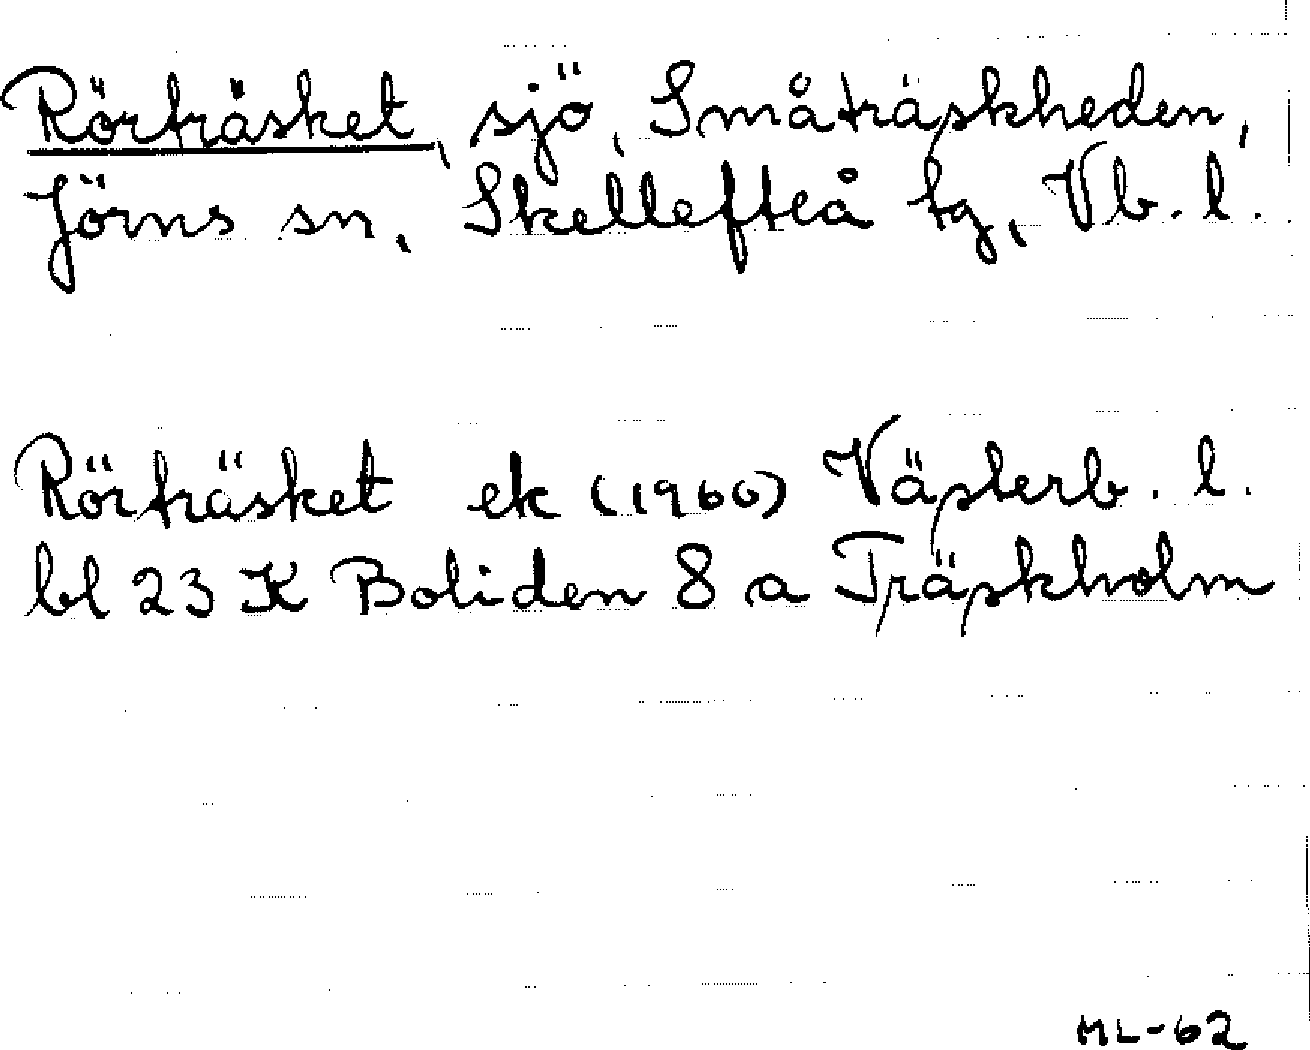 Rörträsket, sjö, Småträskheden,
Jörns sn, Skellefteå tg, Vb. l.
Rörträsket ek (1960) Västerb. l.
bl 23 K Boliden 8 a Träskholm
ML-62